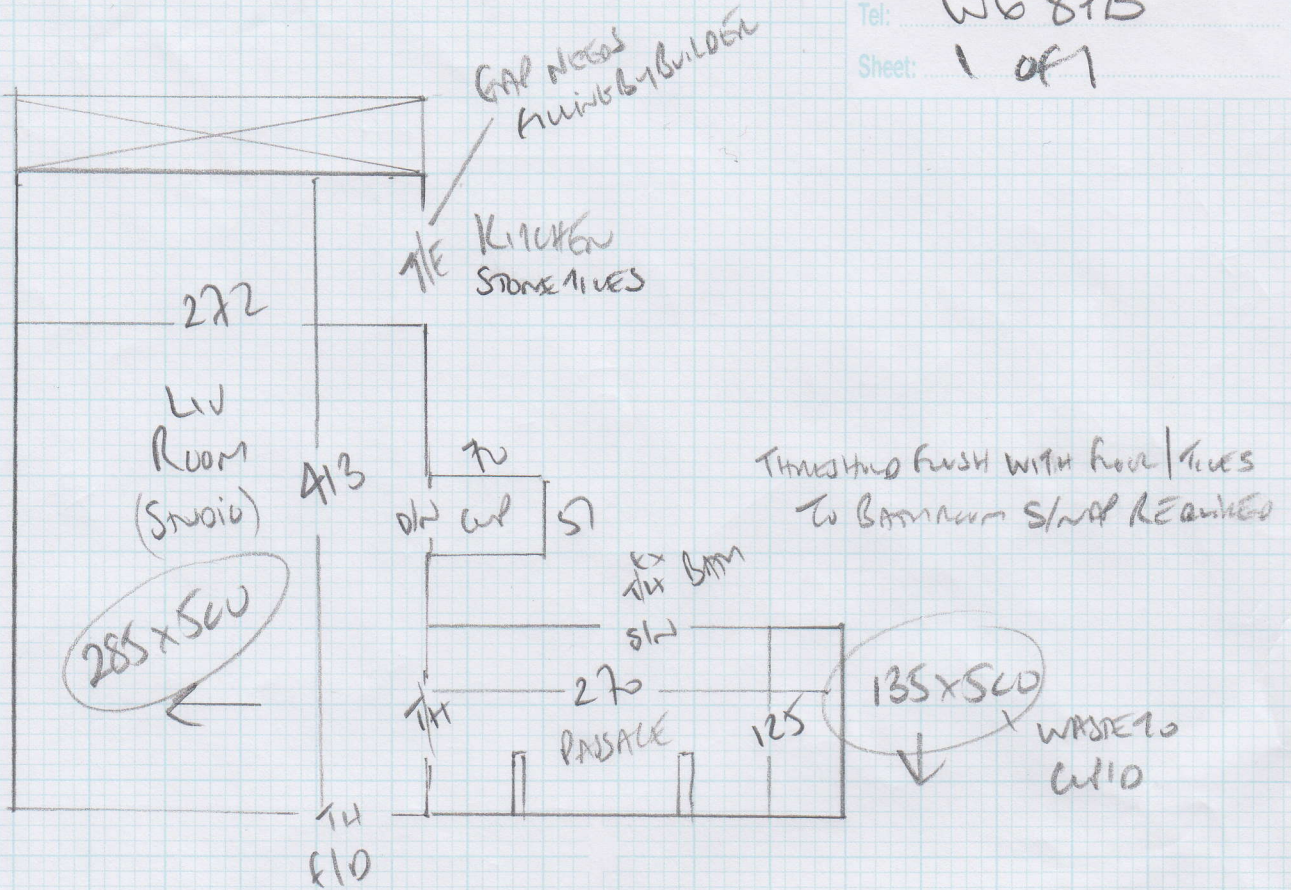 Tel: W6
Sheet: 1 of 1
GAP NEEDS
FILLING BY BUILDER
T/E KITCHEN
STONE TILES
272
LIV
ROOM
(STUDIO)
413
70
D/N CUP 57
THRESHOLD FLUSH WITH FLOOR / TILES
TO BATHROOM S/NAP REQUIRED
BATH
S/N
285 x 500
T/H
270
PASSAGE
125
135 x 500
WASTE TO
CUP'D
TH
F/D